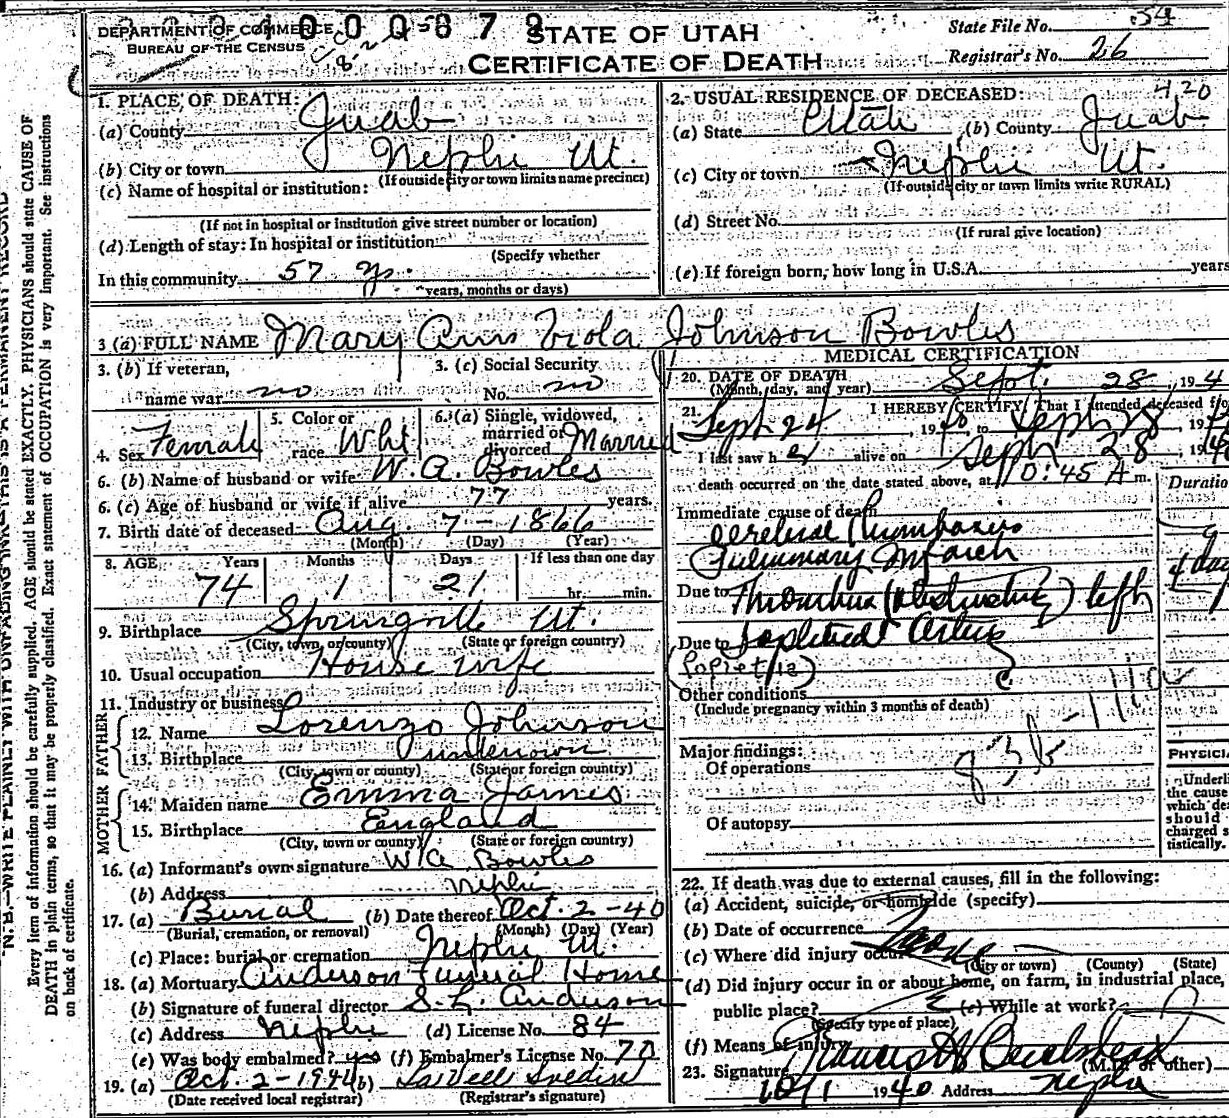 DEPARTMENT OF COMMERCE
BUREAU OF THE CENSUS
STATE OF UTAH
CERTIFICATE OF DEATH
State File No. 54
Registrar's No. 26
1. PLACE OF DEATH:
(a) County Juab
(b) City or town Nephi Ut.
(If outside city or town limits name precinct)
(c) Name of hospital or institution:
(If not in hospital or institution give street number or location)
(d) Length of stay: In hospital or institution
(Specify whether
In this community 57 yr.
years, months or days)
2. USUAL RESIDENCE OF DECEASED:
(a) State Utah (b) County Juab
(c) City or town Nephi Ut.
(If outside city or town limits write RURAL)
(d) Street No.
(If rural give location)
(e) If foreign born, how long in U.S.A. years
3 (a) FULL NAME Mary Ann Viola Johnson Bowles
3. (b) If veteran,
name war no
3. (c) Social Security
No. no
4. Sex Female
5. Color or
race Whi
6. (a) Single, widowed,
married or
divorced Married
6. (b) Name of husband or wife W. A. Bowles
6. (c) Age of husband or wife if alive 77 years.
7. Birth date of deceased Aug. 7 - 1866
(Month) (Day) (Year)
8. AGE Years Months Days If less than one day
74 1 21 hr. min.
9. Birthplace Springville Ut.
(City, town, or county) (State or foreign country)
10. Usual occupation House wife
11. Industry or business
FATHER
12. Name Lorenzo Johnson
13. Birthplace unknown
(City, town or county) (State or foreign country)
MOTHER
14. Maiden name Emma James
15. Birthplace England
(City, town or county) (State or foreign country)
16. (a) Informant's own signature W A Bowles
(b) Address Nephi
17. (a) Burial (b) Date thereof Oct. 2 - 40
(Burial, cremation, or removal) (Month) (Day) (Year)
(c) Place: burial or cremation Nephi Ut.
18. (a) Mortuary Anderson Funeral Home
(b) Signature of funeral director S. L. Anderson
(c) Address Nephi (d) License No. 84
(e) Was body embalmed? yes (f) Embalmer's License No. 70
19. (a) Oct. 2 - 1940 (b)
(Date received local registrar) (Registrar's signature)
MEDICAL CERTIFICATION
20. DATE OF DEATH
(Month, day, and year) Sept. 28, 194
21. I HEREBY CERTIFY, That I attended deceased fro
Sept 24, 1940, to Sept 28, 19
I last saw her alive on Sept 28, 1940
death occurred on the date stated above, at 10:45 A m.
Duratio
Immediate cause of death
Cerebral
Pulmonary
4 days
Due to Thrombus (obstructing) left
Due to popliteal artery
Other conditions
(Include pregnancy within 3 months of death)
Major findings:
Of operations
Of autopsy
PHYSICIA
Underli
the cause
which de
should
charged s
tistically.
22. If death was due to external causes, fill in the following:
(a) Accident, suicide, or homicide (specify)
(b) Date of occurrence
(c) Where did injury occur?
(City or town) (County) (State)
(d) Did injury occur in or about home, on farm, in industrial place,
public place? (e) While at work?
(Specify type of place)
(f) Means of injury
23. Signature (M.D. or other)
10/1 1940 Address Nephi
N. B.—WRITE PLAINLY WITH UNFADING INK—THIS IS A PERMANENT RECORD
Every item of information should be carefully supplied. AGE should be stated EXACTLY. PHYSICIANS should state CAUSE OF
DEATH in plain terms, so that it may be properly classified. Exact statement of OCCUPATION is very important. See instructions
on back of certificate.